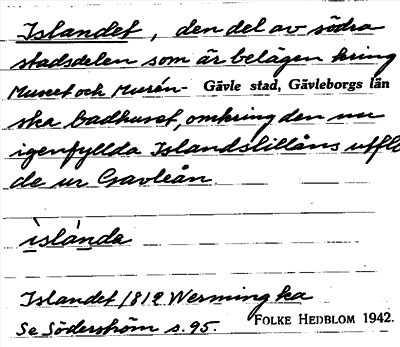 Islandet, den del av södra
stadsdelen som är belägen kring
Museet och Murén- Gävle stad, Gävleborgs län
ska badhuset, omkring den nu
igenfyllda Islandslillåns utflö
de ur Gavleån.
ìslánda
Islandet 1812 Werming ka
Se Söderström s. 95. FOLKE HEDBLOM 1942.